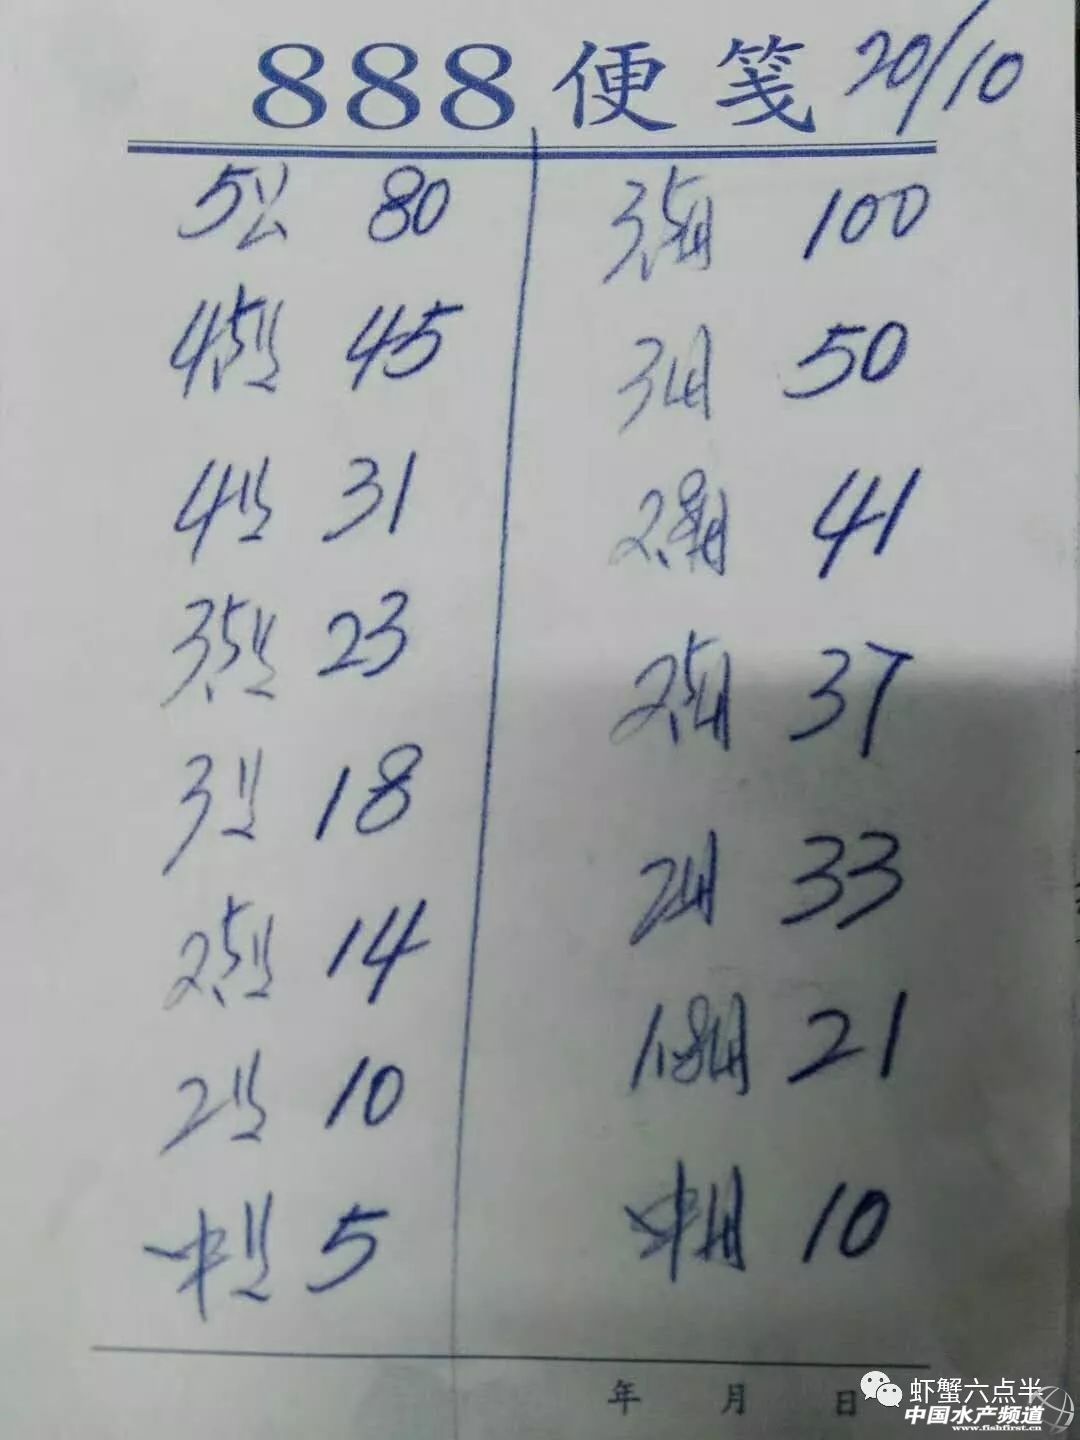 888便笺 20/10
5公 80
4.5公 45
4公 31
3.5公 23
3公 18
2.5公 14
2公 10
中公 5
3.5母 100
3母 50
2.8母 41
2.5母 37
2母 33
1.8母 21
中母 10
年 月 日
虾蟹六点半
中国水产频道
www.fishfirst.cn